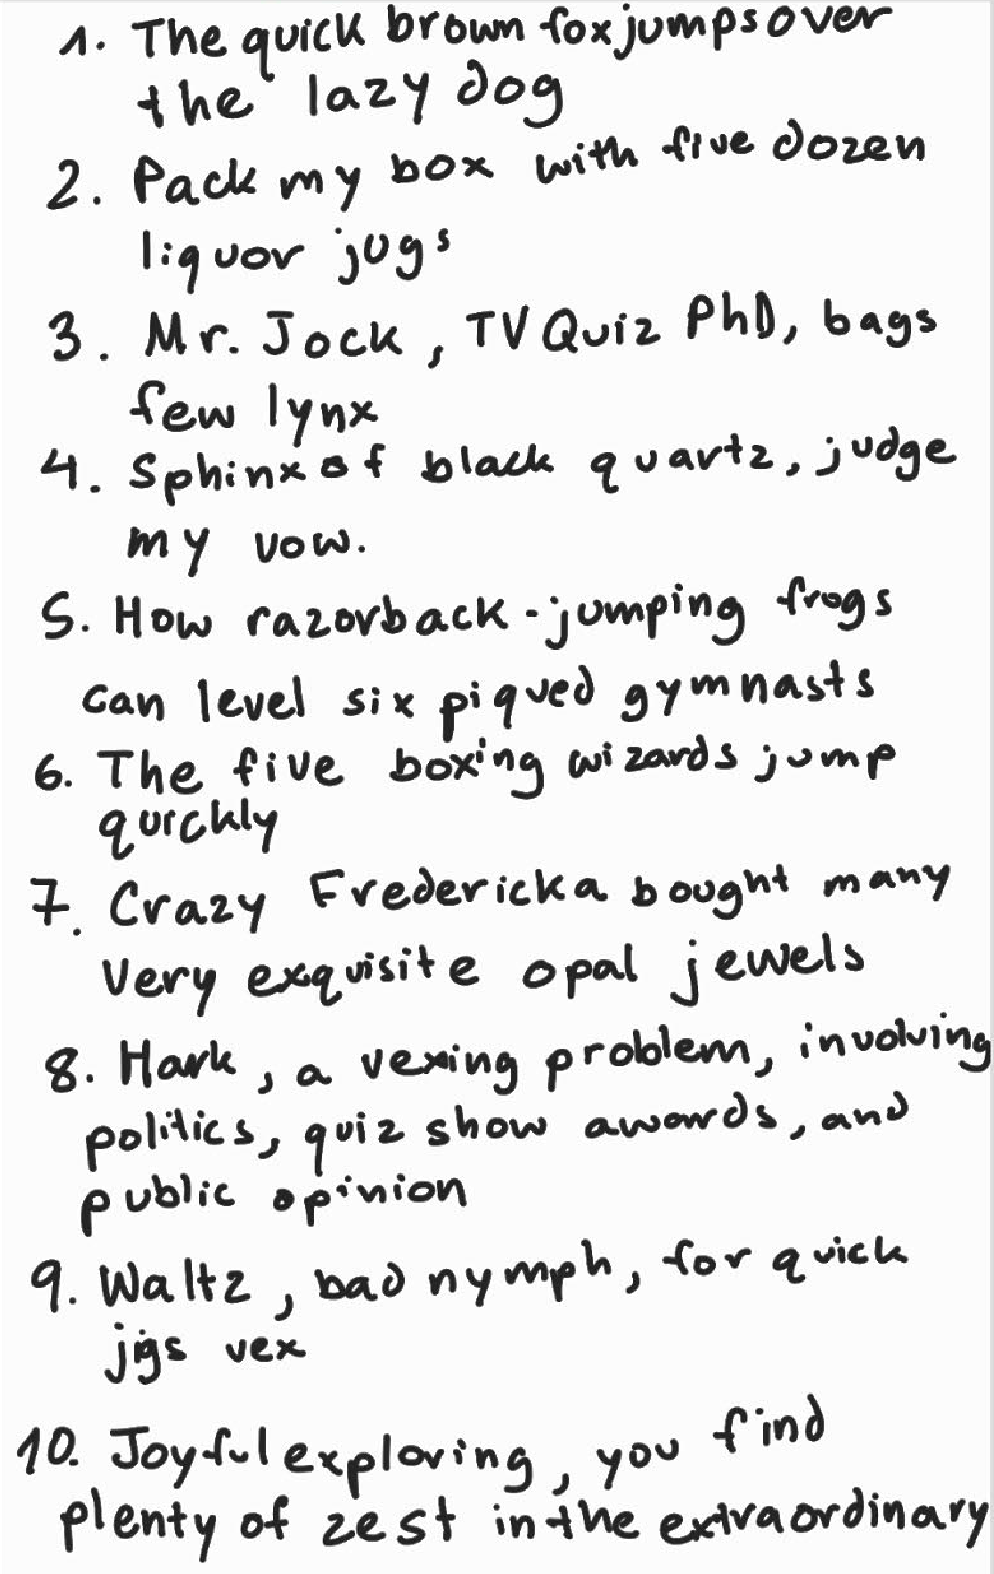 1. The quick brown fox jumps over
the lazy dog
2. Pack my box with five dozen
liquor jugs
3. Mr. Jock, TV Quiz PhD, bags
few lynx
4. Sphinx of black quartz, judge
my vow.
5. How razorback-jumping frogs
can level six piqued gymnasts
6. The five boxing wizards jump
quickly
7. Crazy Fredericka bought many
very exquisite opal jewels
8. Hark, a vexing problem, involving
politics, quiz show awards, and
public opinion
9. Waltz, bad nymph, for quick
jigs vex
10. Joyful exploring, you find
plenty of zest in the extraordinary